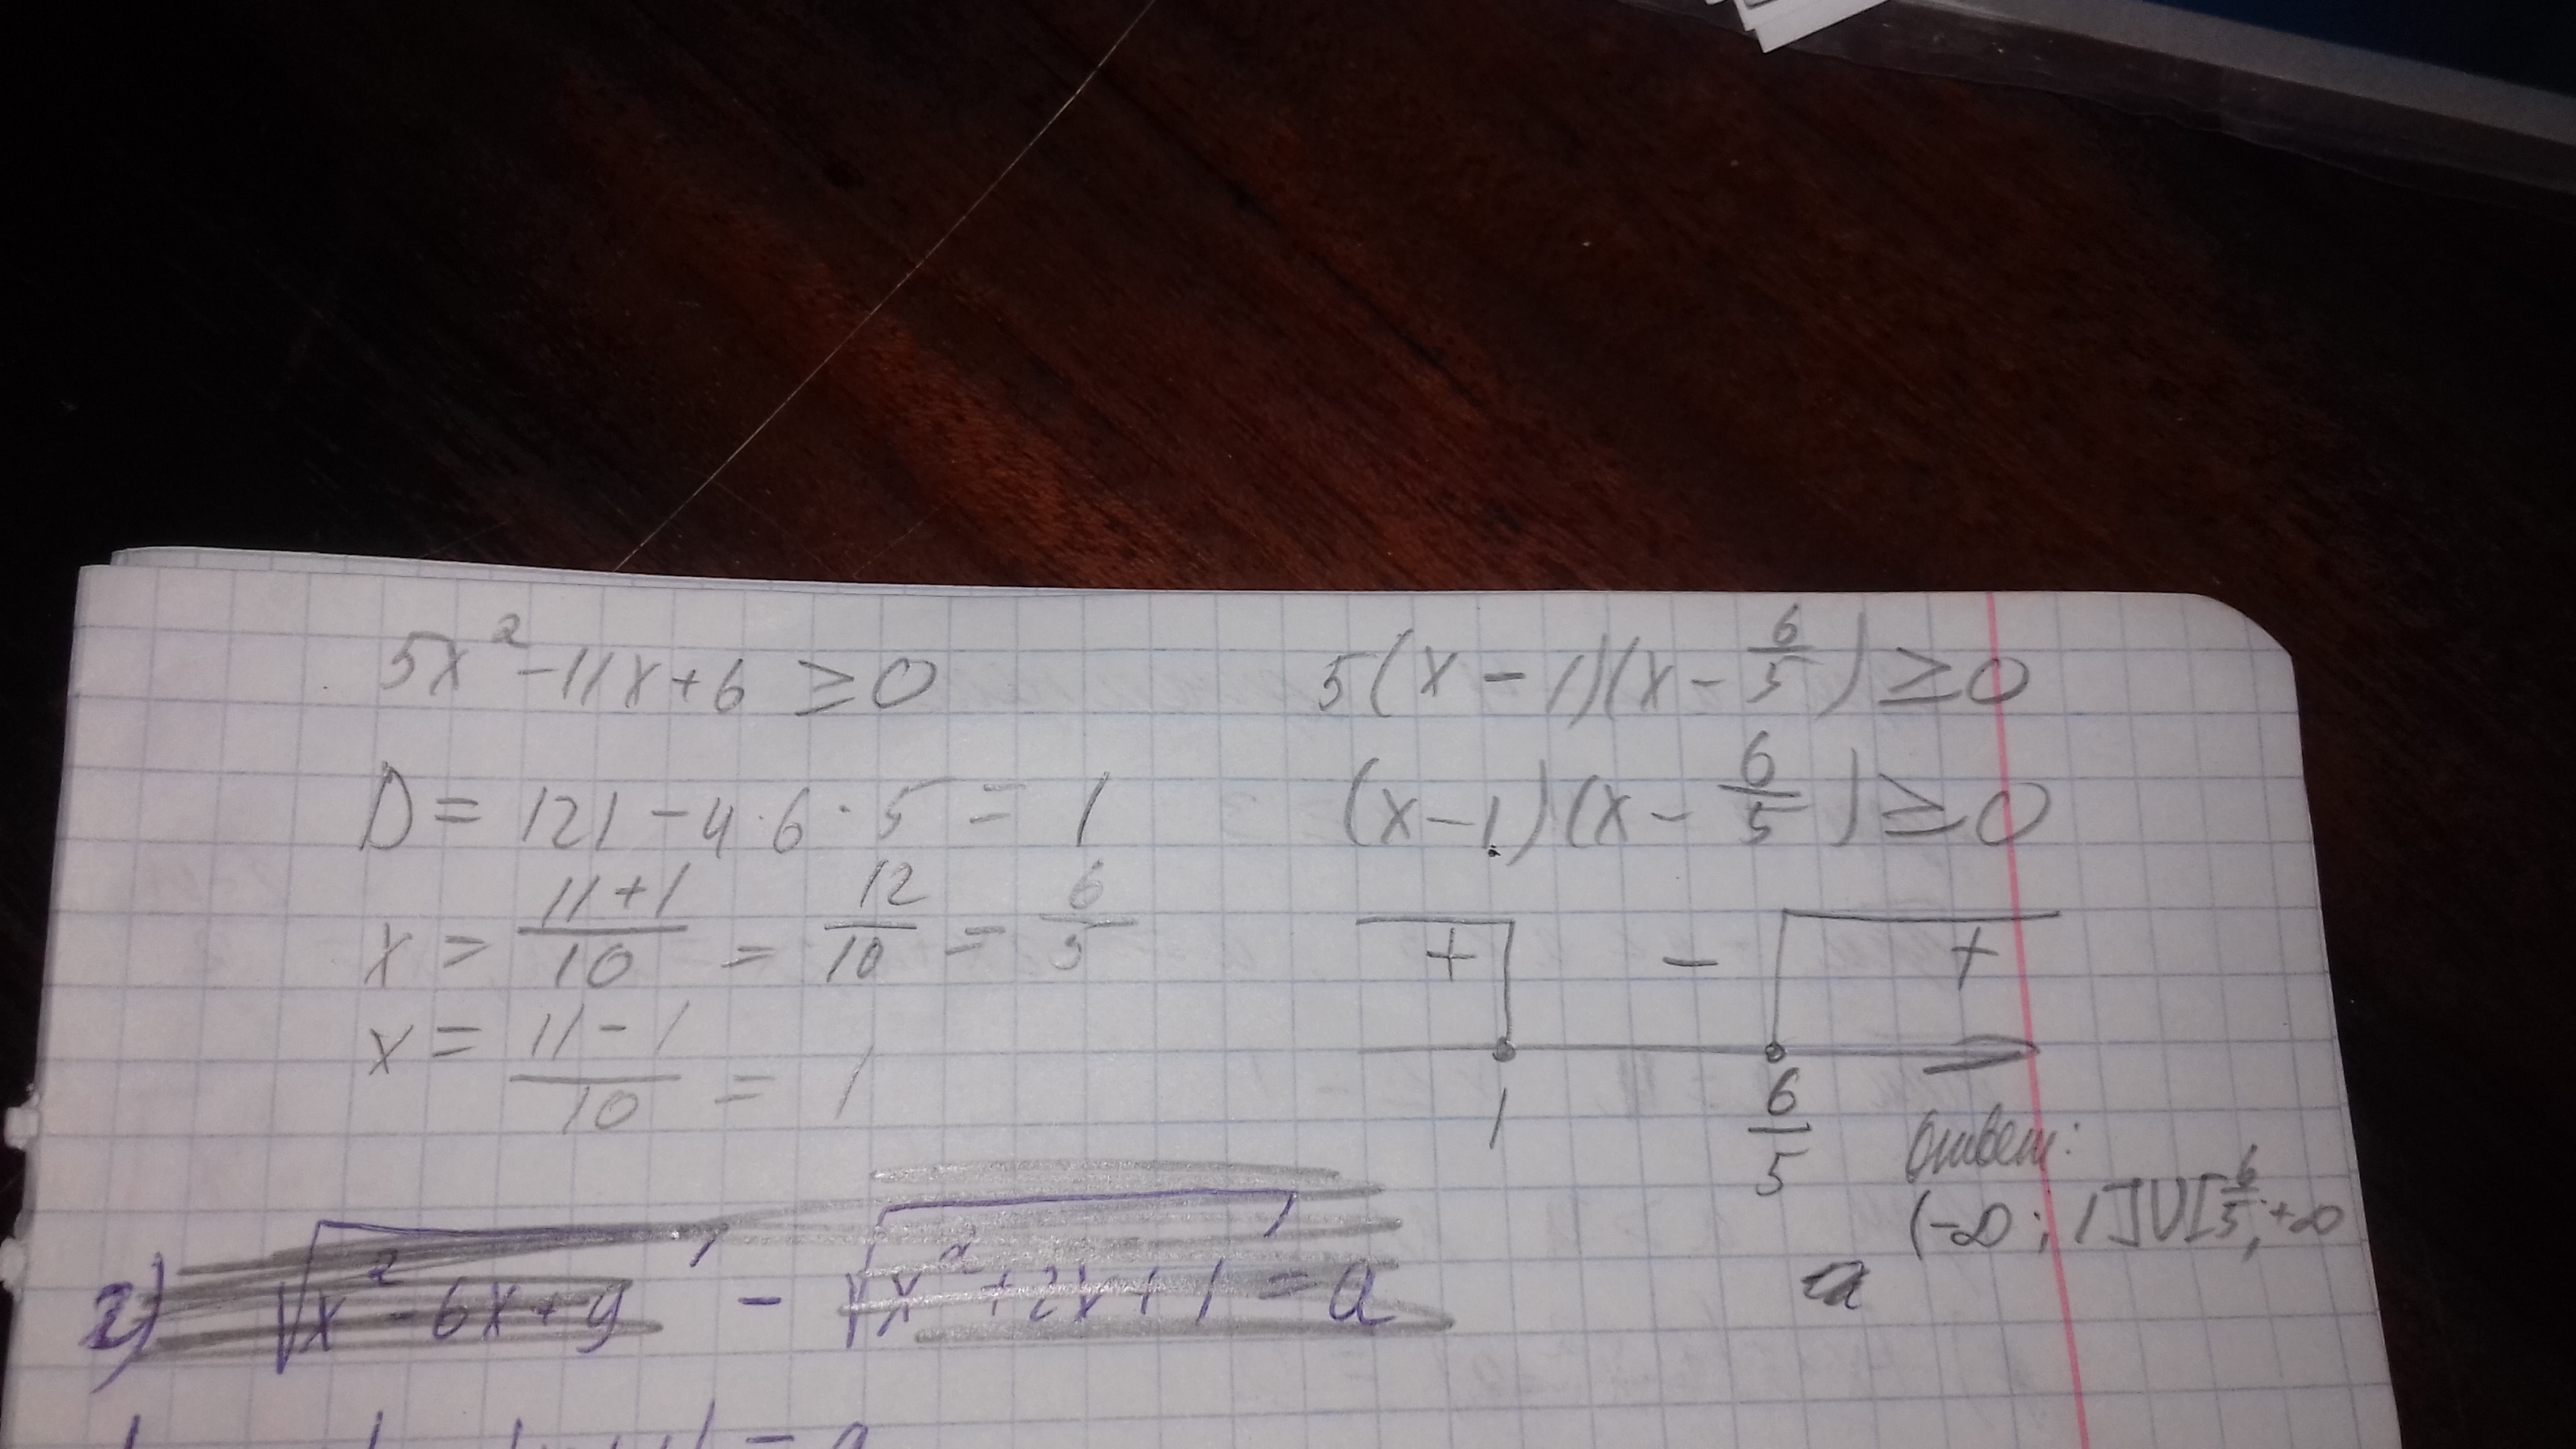 5x² - 11x + 6 ≥ 0
D = 121 - 4 · 6 · 5 = 1
x = (11 + 1)/10 = 12/10 = 6/5
x = (11 - 1)/10 = 1
5(x - 1)(x - 6/5) ≥ 0
(x - 1)(x - 6/5) ≥ 0
+ - +
1 6/5
Ответ:
(-∞; 1]U[6/5; +∞
2) √(x² - 6x + 9) - √(x² + 2x + 1) = a